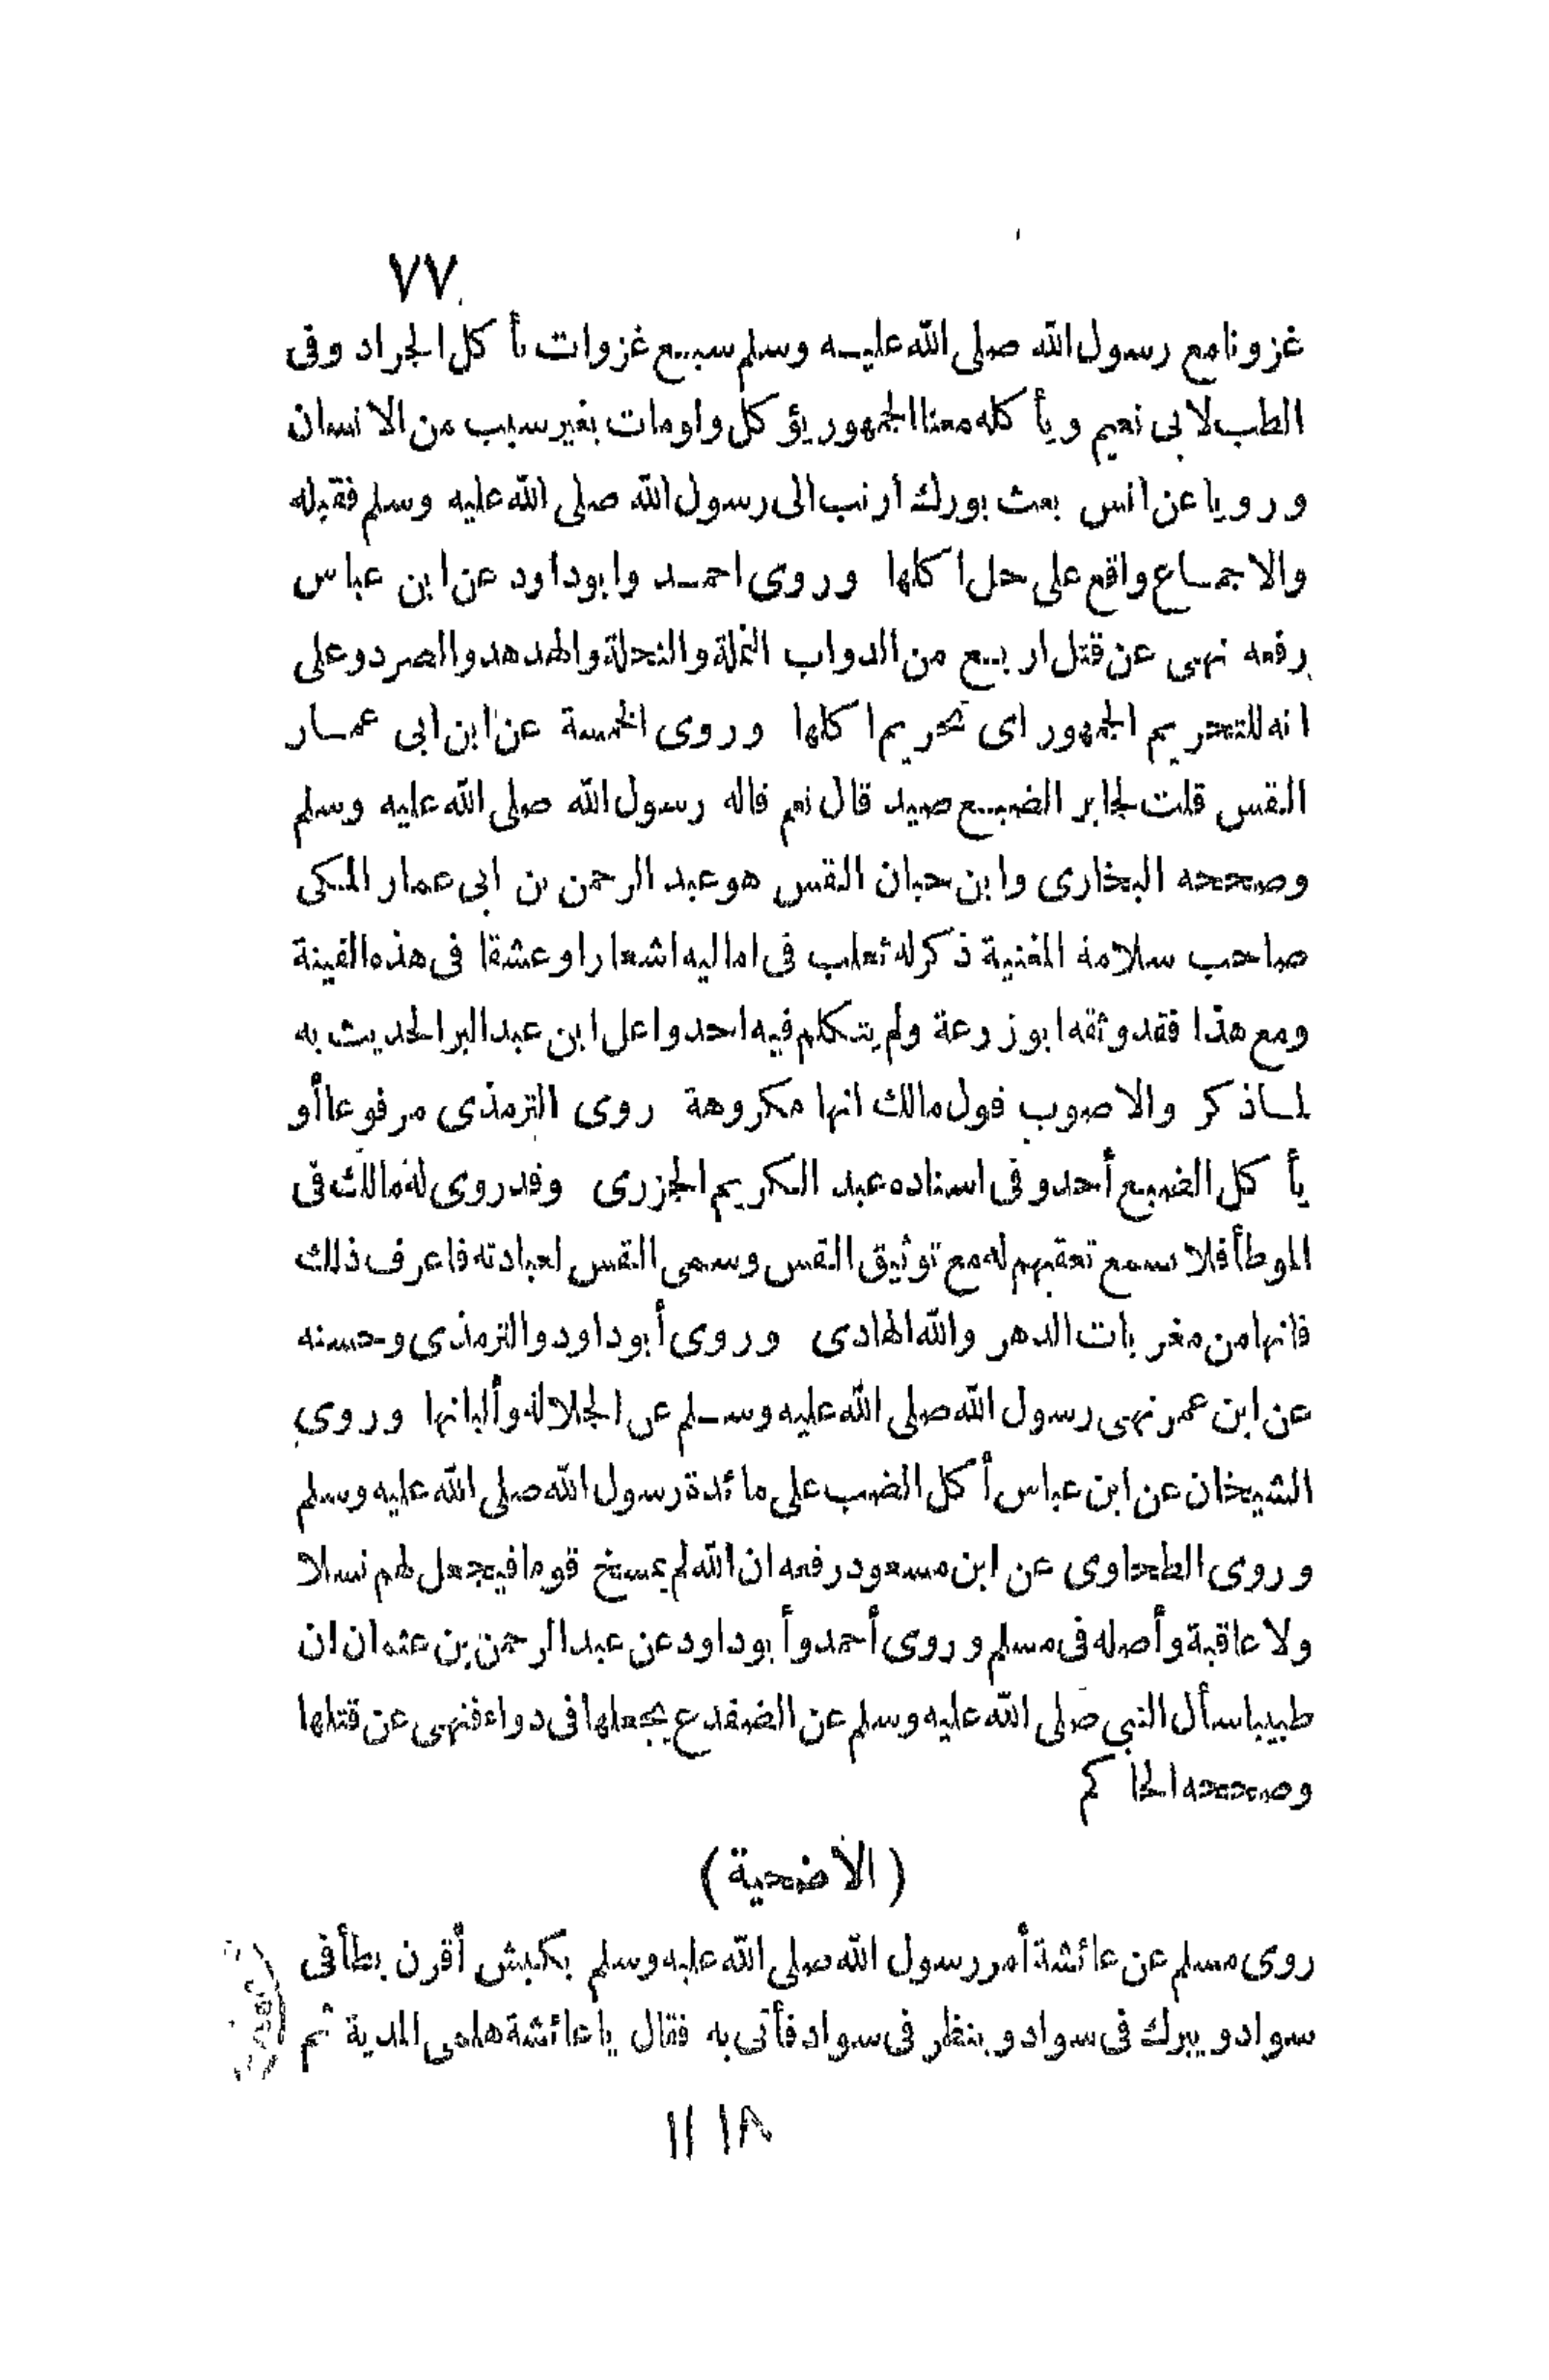 ٧٧
غزونا مع رسول الله صلى الله عليه وسلم سبع غزوات نأكل الجراد وفى
الطب لابى نعيم ويأكله معنا الجمهور يؤكل ولو مات بغير سبب من الانسان
ورويا عن انس بعث بورك ارنب الى رسول الله صلى الله عليه وسلم فقبله
والاجماع واقع على حل اكلها وروى احمد وابو داود عن ابن عباس
رفعه نهى عن قتل اربع من الدواب النملة والنحلة والهدهد والصرد وعلى
انه للتحريم الجمهور اى تحريم اكلها وروى الخمسة عن ابن ابى عمار
القس قلت لجابر الضبع صيد قال نعم قاله رسول الله صلى الله عليه وسلم
وصححه البخارى وابن حبان القس هو عبد الرحمن بن ابى عمار المكى
صاحب سلامة المغنية ذكر له ثعلب فى اماليه اشعارا وعشقا فى هذه القينة
ومع هذا فقد وثقه ابو زرعة ولم يتكلم فيه احد واعل ابن عبد البر الحديث به
لماذكر والاصوب قول مالك انها مكروهة روى الترمذى مرفوعا أو
يأكل الضبع أحد وفى اسناده عبد الكريم الجزرى وقد روى له مالك فى
الموطأ فلا يسمع تعقبهم له مع توثيق القس وسمى القس لعبادته فاعرف ذلك
فانها من مغربات الدهر والله الهادى وروى أبو داود والترمذى وحسنه
عن ابن عمر نهى رسول الله صلى الله عليه وسلم عن الجلالة وألبانها وروى
الشيخان عن ابن عباس أكل الضب على مائدة رسول الله صلى الله عليه وسلم
وروى الطحاوى عن ابن مسعود رفعه ان الله لم يمسخ قوما فيجعل لهم نسلا
ولا عاقبة وأصله فى مسلم وروى أحمد وأبو داود عن عبد الرحمن بن عثمان ان
طبيبا سأل النبي صلى الله عليه وسلم عن الضفدع يجعلها فى دواء فنهى عن قتلها
وصححه الحاكم
(الأضحية)
روى مسلم عن عائشة أمر رسول الله صلى الله عليه وسلم بكبش أقرن يطأ فى
سواد و يبرك فى سواد و ينظر فى سواد فأتى به فقال يا عائشة هلمى المدية ثم